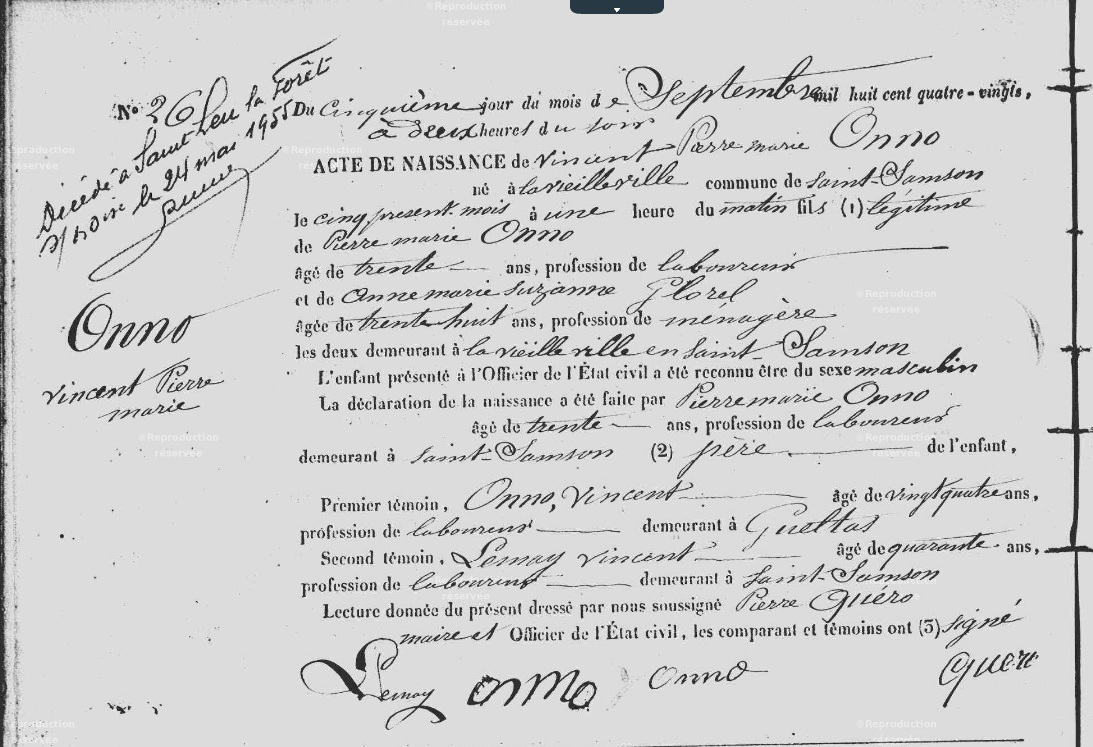 N° 26
Décédé à Saint Leu la Forêt
le 24 mai 1955
Onno
Vincent Pierre
marie
Du Cinquième jour du mois de Septembre mil huit cent quatre-vingts,
à deux heures du soir
ACTE DE NAISSANCE de Vincent Pierre marie Onno
né à la vieille ville commune de Saint-Samson
le cinq présent mois à une heure du matin fils (1) légitime
de Pierre marie Onno
âgé de trente ans, profession de laboureur
et de Anne marie Suzanne Glorel
âgée de trente huit ans, profession de ménagère
les deux demeurant à la vieille ville en Saint-Samson
L'enfant présenté à l'Officier de l'État civil a été reconnu être du sexe masculin
La déclaration de la naissance a été faite par Pierre marie Onno
âgé de trente ans, profession de laboureur
demeurant à Saint-Samson (2) père de l'enfant,
Premier témoin, Onno, Vincent âgé de vingt quatre ans,
profession de laboureur demeurant à Gueltas
Second témoin, Lemay Vincent âgé de quarante ans,
profession de laboureur demeurant à Saint-Samson
Lecture donnée du présent dressé par nous soussigné Pierre Quéro
maire et Officier de l'État civil, les comparant et témoins ont (3) signé
Lemay onno Onno Quero
©Reproduction
réservée